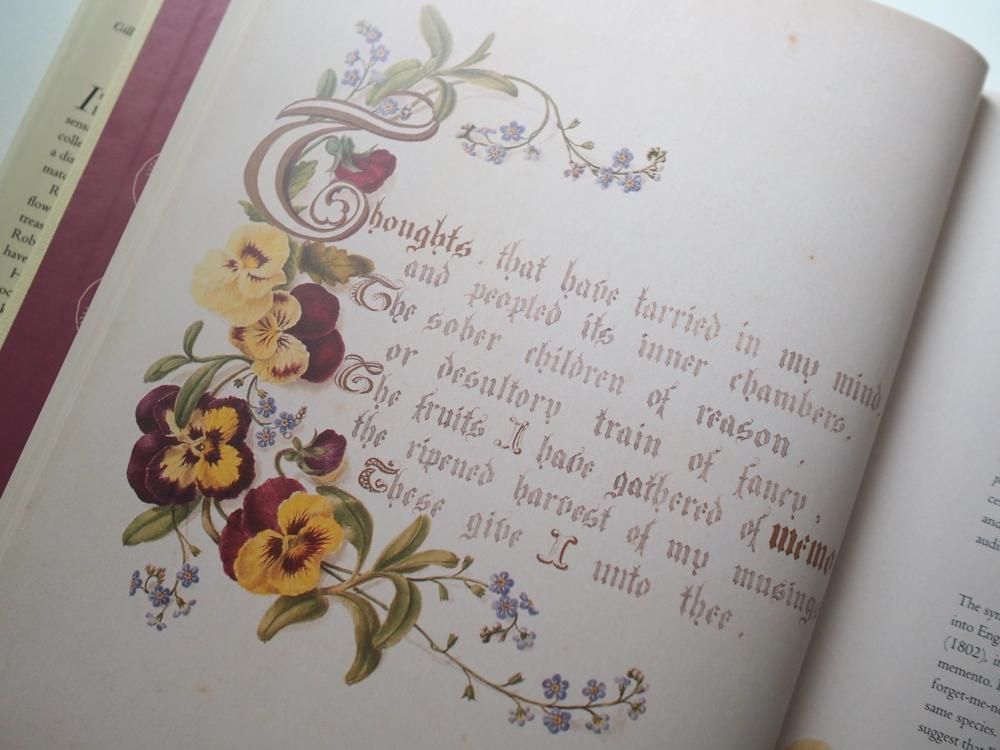 Thoughts, that have tarried in my mind,
and peopled its inner chambers.
The sober children of reason,
or desultory train of fancy,
The fruits I have gathered of memo
the ripened harvest of my musings
These give I unto thee.
Gill
sens
colle
a dis
mate
R
flow
treas
Rob
have
H
and
audi
The syn
into Eng
(1802), i
memento.
forget-me-n
same species,
suggest that